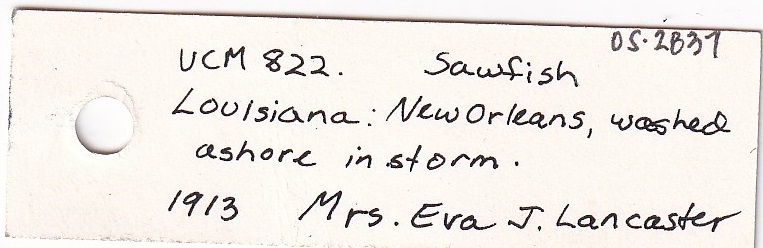 OS·2837
UCM 822. Sawfish
Louisiana: New Orleans, washed
ashore in storm.
1913 Mrs. Eva J. Lancaster